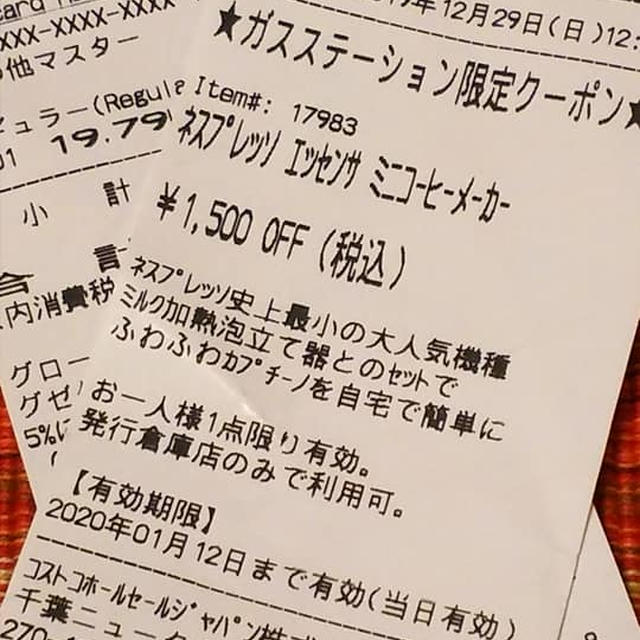 12月29日(日)12:
★ガスステーション限定クーポン★
Item#: 17983
ネスプレッソ エッセンサ ミニコーヒーメーカー
¥1,500 OFF (税込)
ネスプレッソ史上最小の大人気機種
ミルク加熱泡立て器とのセットで
ふわふわカプチーノを自宅で簡単に
お一人様1点限り有効。
発行倉庫店のみで利用可。
【有効期限】
2020年01月12日まで有効(当日有効)
コストコホールセールジャパン株式
千葉ニュータ
270-
XXX-XXXX-XXXX
他マスター
ュラー(Regula
01 19.79
小 計
合
内消費税
グロー
グゼ
5%